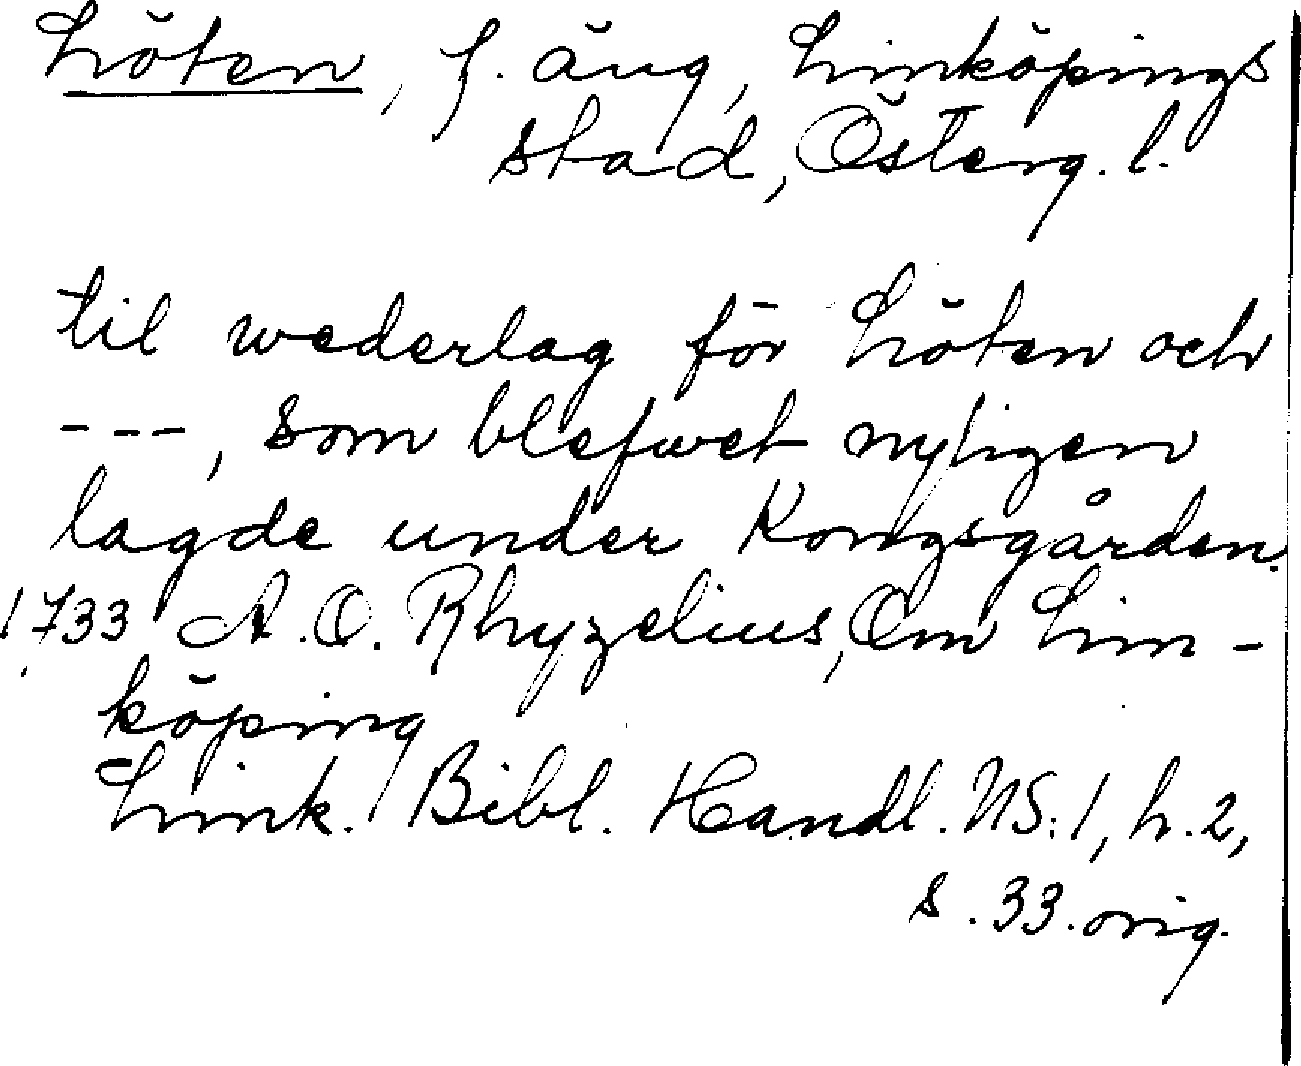 Löten, f. äng, Linköpings
stad, Österg. l.
til wederlag för Löten och
---, som blefwet nyligen
lagde under Kongsgården.
1733 A. O. Rhyzelius, Om Lin-
köping
Link. Bibl. Handl. NS: 1, h. 2,
s. 33. orig.